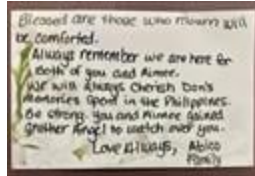 Blessed are those who mourn will
be comforted.
Always remember we are here for
both of you and Aimee.
We will Always Cherish Don's
memories spent in the Philippines.
Be strong you and Aimee gained
another Angel to watch over you.
Love Always, Abico
Family